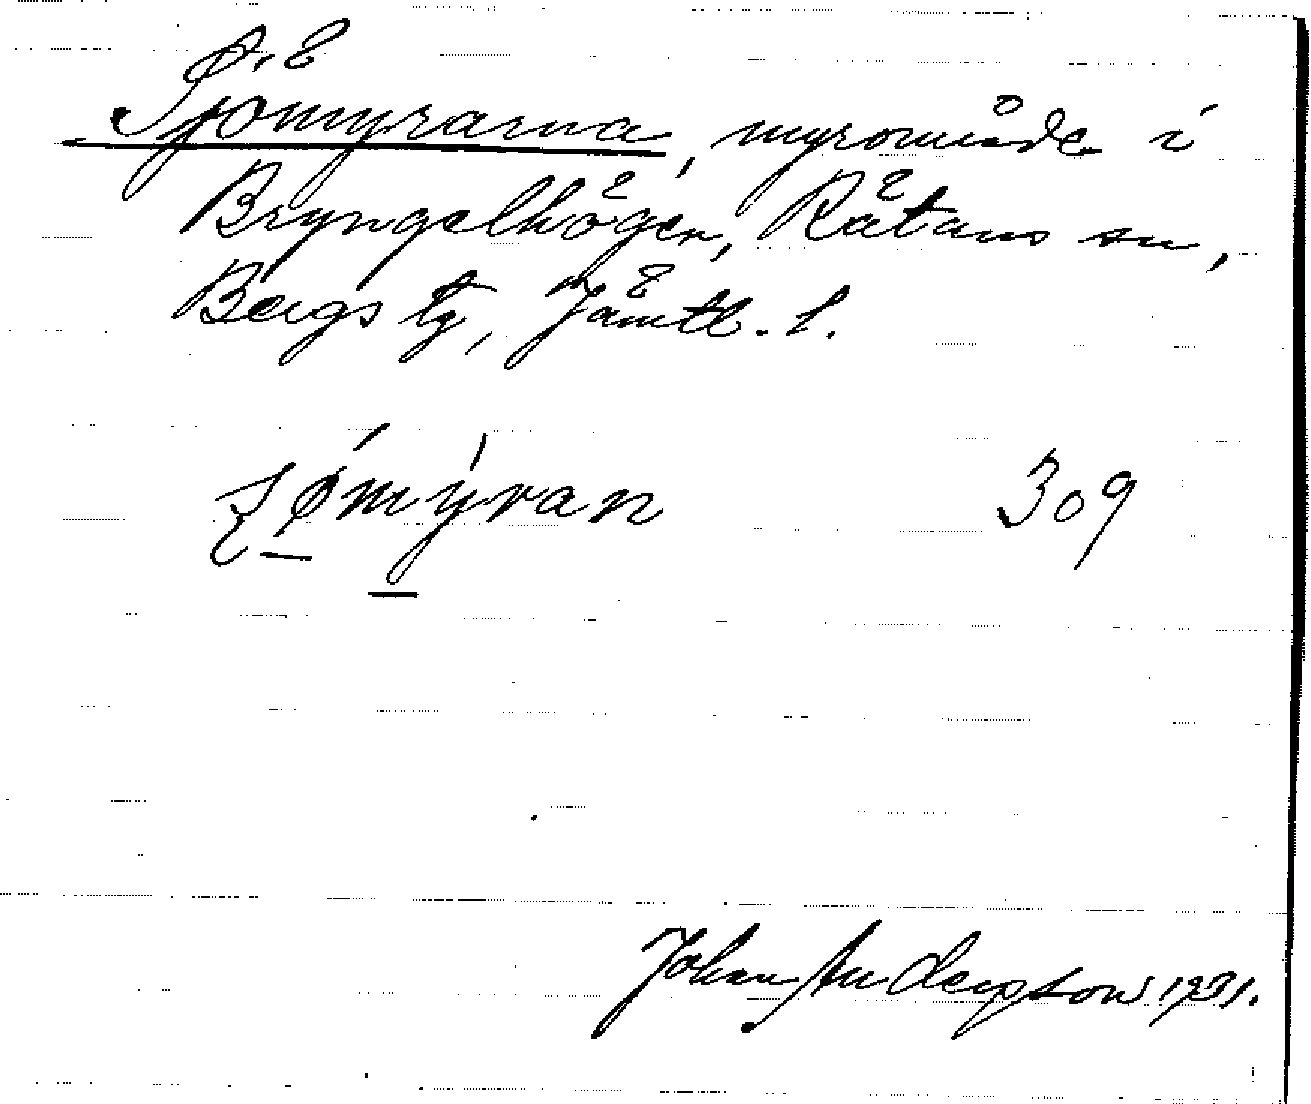 Sjömyrarna, myrområde i
Bryngelhögen, Rätans sn,
Bergs tg, Jämtl. l.
309
Johan Anderson 1931.